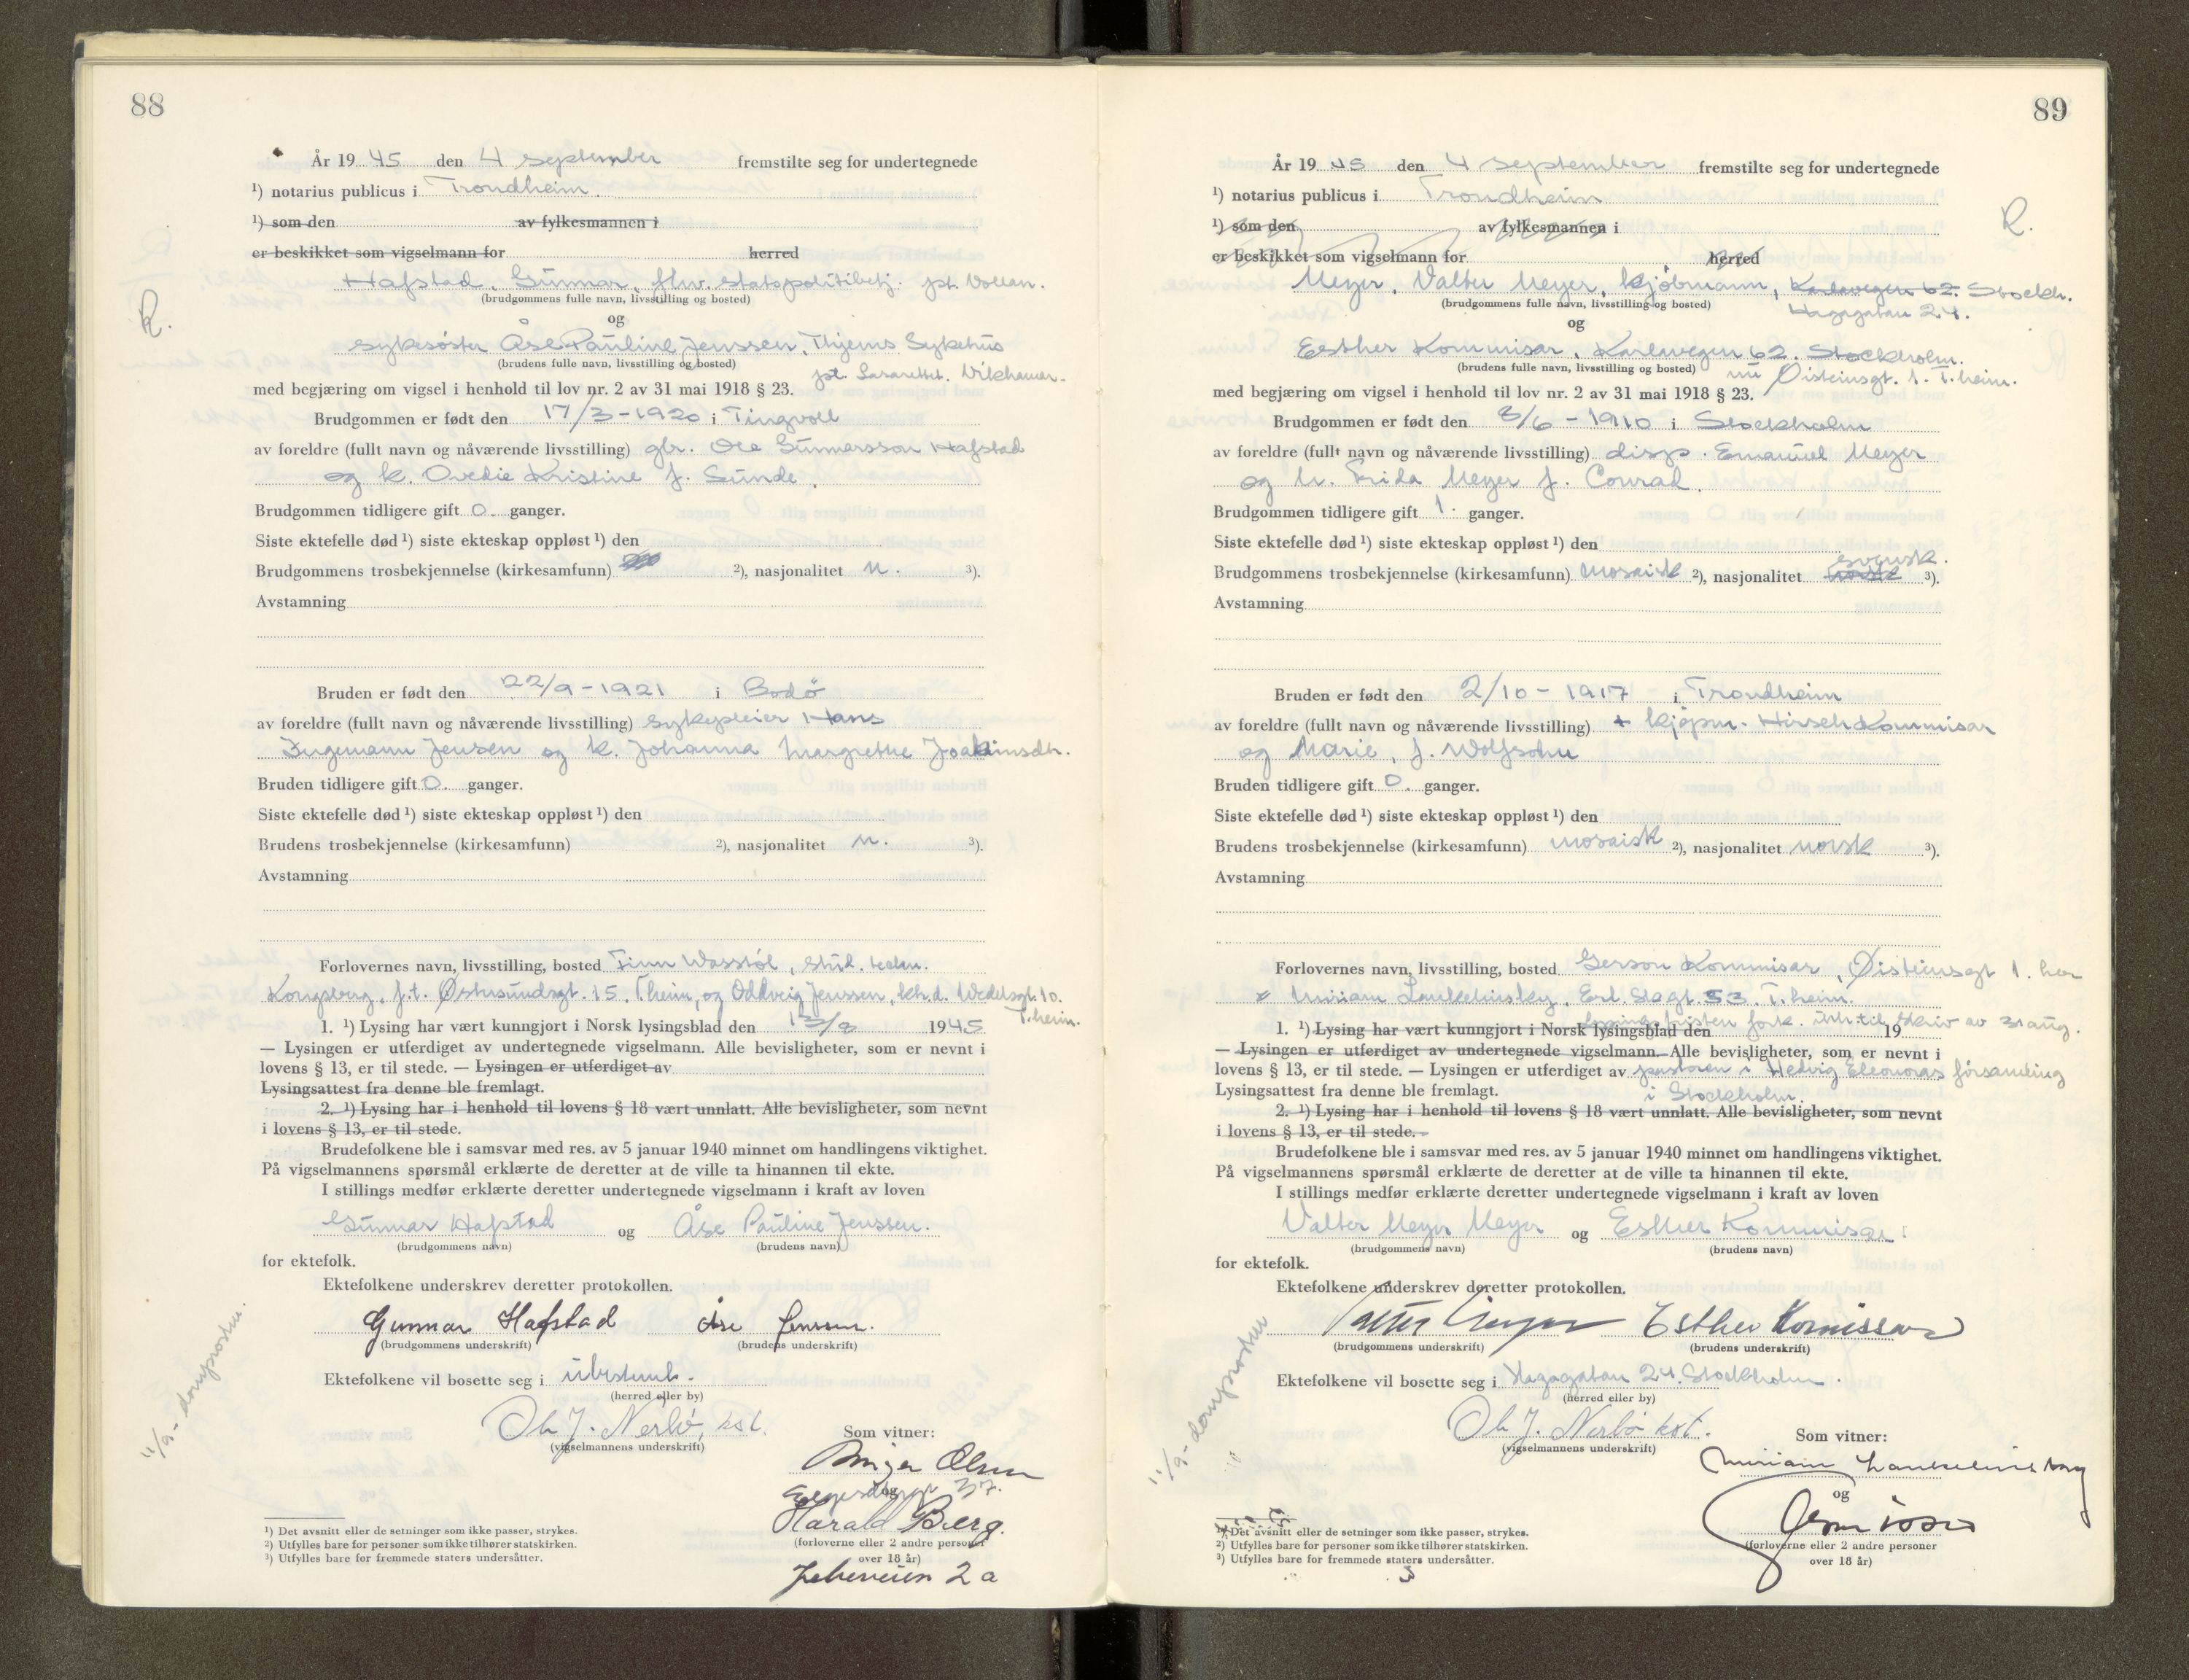 88
År 19 45 den 4 september fremstilte seg for undertegnede
¹) notarius publicus i Trondheim.
¹) som den av fylkesmannen i
er beskikket som vigselmann for herred
Hafstad, Gunnar, fhv. statspolitibetj. pt. Vollan.
(brudgommens fulle navn, livsstilling og bosted)
R.
og
sykesøster Åse Pauline Jenssen, T.hjems Sykehus
(brudens fulle navn, livsstilling og bosted)
pt. Lasarettet. Vikhamar.
med begjæring om vigsel i henhold til lov nr. 2 av 31 mai 1918 § 23.
Brudgommen er født den 17/3-1920 i Tingvoll
av foreldre (fullt navn og nåværende livsstilling) gbr. Ole Gunnarsson Hafstad
og k. Ovedie Kristine f. Sunde.
Brudgommen tidligere gift 0. ganger.
Siste ektefelle død ¹) siste ekteskap oppløst ¹) den
Brudgommens trosbekjennelse (kirkesamfunn) ²), nasjonalitet n. ³).
Avstamning
Bruden er født den 22/9-1921 i Bodö
av foreldre (fullt navn og nåværende livsstilling) sykepleier Hans
Ingemann Jensen og k. Johanna Margrethe Joakimsdtr.
Bruden tidligere gift 0. ganger.
Siste ektefelle død ¹) siste ekteskap oppløst ¹) den
Brudens trosbekjennelse (kirkesamfunn) ²), nasjonalitet n. ³).
Avstamning
Forlovernes navn, livsstilling, bosted Finn Wasstøl, stud. techn.
Kongsberg, f.t. Østersundsgt. 15, T.heim, og Oddveig Jenssen, Wedelsgt. 10.
T.heim.
1. ¹) Lysing har vært kunngjort i Norsk lysingsblad den 13/8 1945
— Lysingen er utferdiget av undertegnede vigselmann. Alle bevisligheter, som er nevnt i
lovens § 13, er til stede. — Lysingen er utferdiget av
Lysingsattest fra denne ble fremlagt.
2. ¹) Lysing har i henhold til lovens § 18 vært unnlatt. Alle bevisligheter, som nevnt
i lovens § 13, er til stede.
Brudefolkene ble i samsvar med res. av 5 januar 1940 minnet om handlingens viktighet.
På vigselmannens spørsmål erklærte de deretter at de ville ta hinannen til ekte.
I stillings medfør erklærte deretter undertegnede vigselmann i kraft av loven
Gunnar Hafstad og Åse Pauline Jenssen.
(brudgommens navn) (brudens navn)
for ektefolk.
Ektefolkene underskrev deretter protokollen.
Gunnar Hafstad Åse Jenssen.
(brudgommens underskrift) (brudens underskrift)
Ektefolkene vil bosette seg i ubestemt.
(herred eller by)
11/9- domprosten.
Ole J. Nerbø, kst.
(vigselmannens underskrift)
Som vitner:
Birger Olsen
og 37.
Harald Berg.
(forloverne eller 2 andre personer
over 18 år)
2 a
¹) Det avsnitt eller de setninger som ikke passer, strykes.
²) Utfylles bare for personer som ikke tilhører statskirken.
³) Utfylles bare for fremmede staters undersåtter.
89
År 19 45 den 4 september fremstilte seg for undertegnede
¹) notarius publicus i Trondheim
¹) som den av fylkesmannen i
R.
er beskikket som vigselmann for herred
Meyer, Valter Meyer, kjøbmann, Karlavegen 62. Stockh.
(brudgommens fulle navn, livsstilling og bosted) Hagagatan 24.
og
Esther Kommisar, Karlavegen 62. Stockholm.
(brudens fulle navn, livsstilling og bosted) nu Øisteinsgt. 1. T.heim.
med begjæring om vigsel i henhold til lov nr. 2 av 31 mai 1918 § 23.
Brudgommen er født den 3/6-1910 i Stockholm
av foreldre (fullt navn og nåværende livsstilling) disp. Emanuel Meyer
og h. Frida Meyer f. Conrad.
Brudgommen tidligere gift 1. ganger.
Siste ektefelle død ¹) siste ekteskap oppløst ¹) den
svensk.
Brudgommens trosbekjennelse (kirkesamfunn) mosaisk ²), nasjonalitet norsk ³).
Avstamning
Bruden er født den 2/10-1917 i Trondheim
av foreldre (fullt navn og nåværende livsstilling) + kjøpm. Hirsch Kommisar
og Marie, f. Wolfsohn
Bruden tidligere gift 0. ganger.
Siste ektefelle død ¹) siste ekteskap oppløst ¹) den
Brudens trosbekjennelse (kirkesamfunn) mosaisk ²), nasjonalitet norsk ³).
Avstamning
Forlovernes navn, livsstilling, bosted Gerson Kommisar, Øisteinsgt 1. her
Miriam Lankelinsky, Erl. Slagt. 53. T.heim.
lysingsfristen fork. til skriv av 31 aug.
1. ¹) Lysing har vært kunngjort i Norsk lysingsblad den 19
— Lysingen er utferdiget av undertegnede vigselmann. Alle bevisligheter, som er nevnt i
lovens § 13, er til stede. — Lysingen er utferdiget av pastoren i Hedvig Eleonoras församling
Lysingsattest fra denne ble fremlagt. i Stockholm.
2. ¹) Lysing har i henhold til lovens § 18 vært unnlatt. Alle bevisligheter, som nevnt
i lovens § 13, er til stede.
Brudefolkene ble i samsvar med res. av 5 januar 1940 minnet om handlingens viktighet.
På vigselmannens spørsmål erklærte de deretter at de ville ta hinannen til ekte.
I stillings medfør erklærte deretter undertegnede vigselmann i kraft av loven
Valter Meyer Meyer og Esther Kommisar.
(brudgommens navn) (brudens navn)
for ektefolk.
Ektefolkene underskrev deretter protokollen.
Valter Meyer Esther Komissar
(brudgommens underskrift) (brudens underskrift)
Ektefolkene vil bosette seg i Hagagatan 24. Stockholm.
(herred eller by)
11/9- domprosten
Ole J. Nerbø kst.
(vigselmannens underskrift)
Som vitner:
Miriam Lankelinsky
og
(forloverne eller 2 andre personer
over 18 år)
¹) Det avsnitt eller de setninger som ikke passer, strykes.
²) Utfylles bare for personer som ikke tilhører statskirken.
³) Utfylles bare for fremmede staters undersåtter.